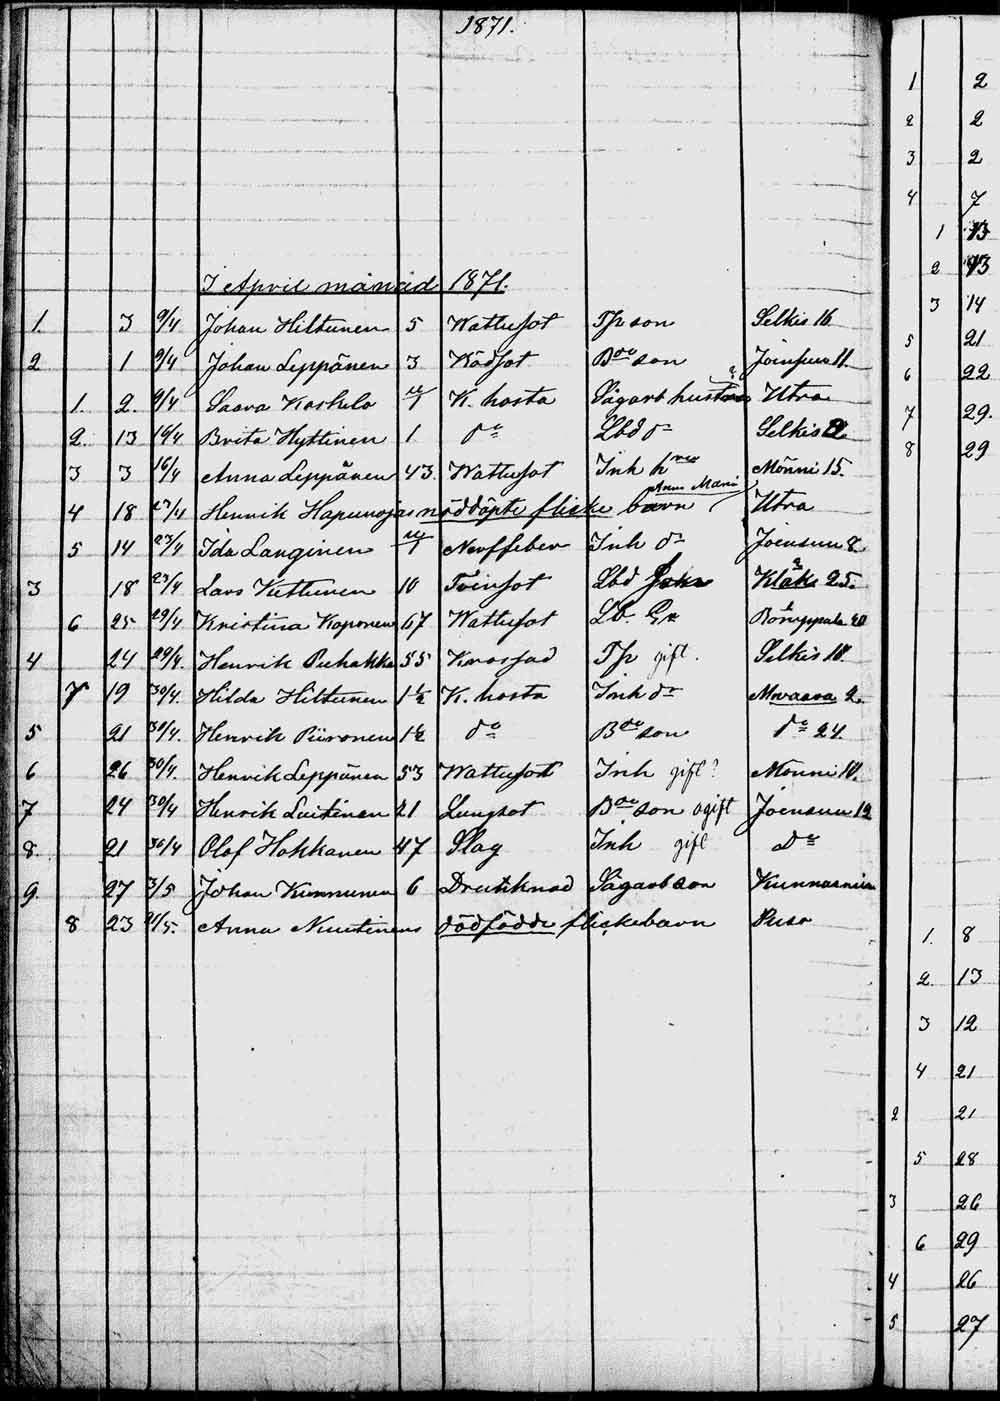 1871.
I April månad 1871.
1. 3 9/4 Johan Hiltunen 5 Wattusot Tp son Selkis 16.
2 1 9/4 Johan Leppänen 3 Rödsot Bde son Joensuu 11.
1. 2. 9/4 Saara Koskelo K. hosta Sågarb hustru Utra
2. 13 16/4 Brita Hyttinen 1 do Lbd do Selkis
3 3 16/4 Anna Leppänen 43. Wattusot Inh Mönni 15.
Anna Mari
4 18 23/4 Henrik Hapunojas nöddöpte flicke barn Utra
5 14 23/4 Ida Langinen Nerffeber Inh do Joensuu 8
3 18 23/4 Lars Kuttunen 10 Tvinsot Lbd 25.
6 25 29/4 Kristina Koponen 67 Wattusot
4 24 29/4. Henrik Puhakka 55 Tp gift. Selkis 18.
7 19 30/4. Hilda Hiltunen 1½ K. hosta Inh do 2.
5 21 30/4. Henrik Piironen 1½ do Bde son do 24.
6 26 30/4. Henrik Leppänen 53 Wattusot Inh gift? Mönni 10.
7 24 30/4 Henrik Laitinen 21 Lungsot Bde son ogift Joensuu 12
8. 21 30/4 Olof Hakkanen 47 Slag Inh gift Do
9. 27 3/5 Johan Kinnunen 6 Drunknad Sågarb son Kunnasniemi
8 23 /5. Anna Nuutinens dödfödde flickebarn
1 2
2 2
3 2
4 7
1 13
2 13
3 14
5 21
6 22
7 29.
8 29
1. 8
2. 13
3 12
4 21
2 21
5 28
3 26
6 29
4 26
5 27